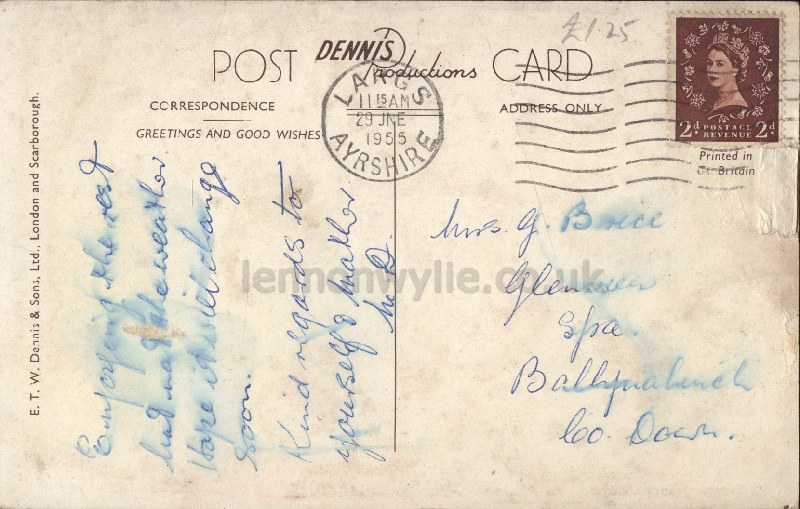 £1.25
POST DENNIS Productions CARD
CORRESPONDENCE
ADDRESS ONLY
GREETINGS AND GOOD WISHES
LARGS
11 15 AM
29 JNE
1955
AYRSHIRE
2d POSTAGE REVENUE 2d
Printed in
Gt Britain
E. T. W. Dennis & Sons, Ltd., London and Scarborough.
Enjoying the rest
but not the weather
Hope it will change
soon.
Kind regards to
yourself & mother
Mrs. G. Brice
Spa.
Ballynahinch
Co. Down.
lennonwylie.co.uk